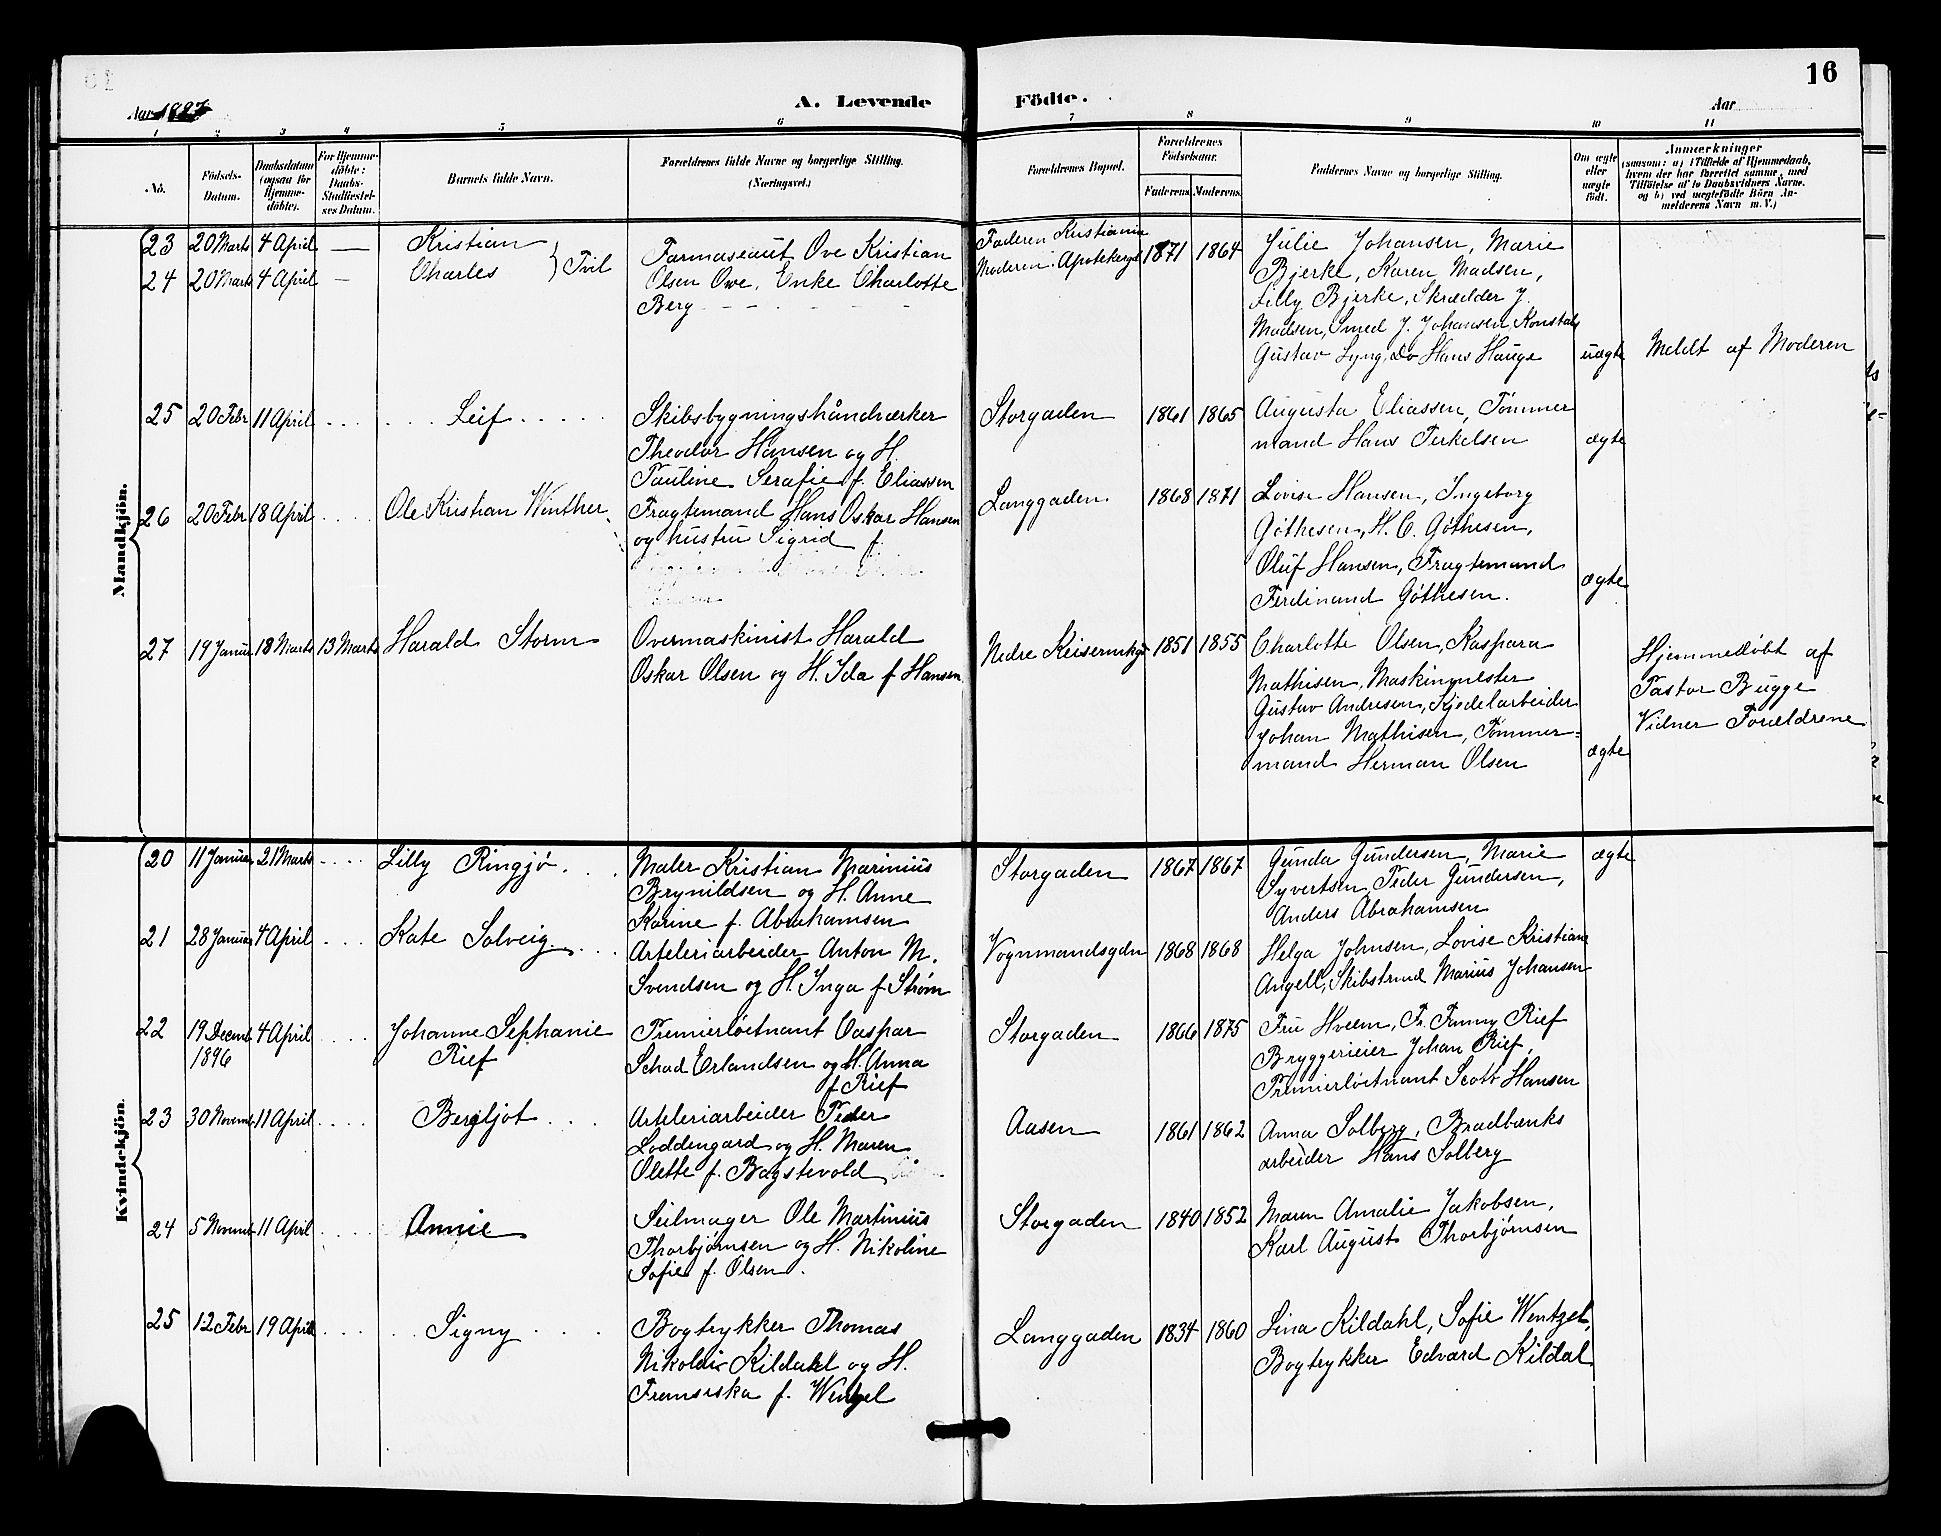 16
Aar 1897
A. Levende Födte.
Aar
1 2 3 4 5 6 7 8 9 10 11
No.
Födsels-Datum.
Daabsdatum (ogsaa for Hjemme-döbte).
For Hjemme-döbte: Daabs-Stadfæstel-ses Datum.
Barnets fulde Navn.
Forældrenes fulde Navne og borgerlige Stilling. (Næringsvei.)
Forældrenes Bopæl.
Forældrenes Födselsaar.
Faderens. Moderens.
Faddernes Navne og borgerlige Stilling.
Om ægte eller uægte født.
Anmærkninger
(saasom: a) i Tilfælde af Hjemmedaab, hvem der har forrettet samme, med Tilföielse af to Daabsvidners Navne, og b) ved uægtefödte Börn Anmelderens Navn m. V.)
Mandkjön.
23 20 Marts 4 April — Kristian } Tvil
24 20 Marts 4 April — Charles
Farmaseaut Ove Kristian
Olsen Owe, Enke Charlotte
Berg
Faderen Kristiania
Moderen: Apotekergd
1871 1864
Julie Johansen, Marie
Bjerke, Karen Madsen,
Lilly Bjerke, Skrædder J.
Madsen, Smed J. Johansen, Konstab
Gustav Lyng, Do Hans Hauge
uægte
Meldt af Moderen
25 20 Febr 11 April Leif
Skibsbygningshåndværker
Theodor Hansen og H.
Pauline Serafie f. Eliassen
Storgaden 1861 1865
Augusta Eliassen, Tømmer
mand Hans Terkelsen
ægte
26 20 Febr 18 April Ole Kristian Winther
Fragtemand Hans Oskar Hansen
og hustru Sigrid f.
Langgaden. 1868 1871
Lovise Hansen, Ingeborg
Gøthesen, H. C. Gøthesen,
Oluf Hansen, Fragtemand
Ferdinand Gøthesen.
ægte
27 19 Januar 18 Marts 13 Marts Harald Storm
Overmaskinist Harald
Oskar Olsen og H. Ida f Hansen
Nedre Keisemkgd 1851 1855
Charlotte Olsen, Kaspara
Mathisen, Maskinmester
Gustav Andresen, Kjedelarbeider
Johan Mathisen, Tømmer=
mand Herman Olsen
ægte
Hjemmedøbt af
Pastor Bugge
Vidner Forældrene
Kvindekjön.
20 11 Januar 21 Marts Lilly Ringjø.
Maler Kristian Marinius
Brynildsen og H. Anne
Karine f. Abrahamsen
Storgaden 1867 1867
Gunda Gundersen, Marie
Syvertsen, Peder Gundersen,
Anders Abrahamsen
ægte
21 28 Januar 4 April Kate Solveig.
Arteleriarbeider Anton M.
Svendsen og H. Inga f Strøm
Vognmandsgdn 1868 1868
Helga Johnsen, Lovise Kristian
Angell, Skibstrmd Marius Johansen
22 19 Decemb 1896 4 April Johanne Sephanie
Rief
Premierløitnant Caspar
Schad Erlandsen og H. Anna
f Rief
Storgaden 1866 1875
Fru Hveem, Fr. Fanny Rief
Bryggerieier Johan Rief,
Premierløitnant Scott Hansen
23 30 Novemb 11 April Bergljot
Arteleriarbeider Peder
Loddengard og H. Maren
Olette f. Bagstevold
Aasen 1861 1862
Anna Solberg, Bradbænks
arbeider Hans Solberg
24 5 Novemb 11 April Annie
Seilmager Ole Martinius
Thorbjørnsen og H. Nikoline
Sofie f. Olsen.
Storgaden 1840 1852
Maren Amalie Jakobsen,
Karl August Thorbjørnsen
25 12 Febr 19 April Signy
Bogtrykker Thomas
Nikolai Kildahl og H.
Fransiska f. Wentzel
Langgaden 1834 1860
Lina Kildahl, Sofie Wentzel,
Bogtrykker Edvard Kildal